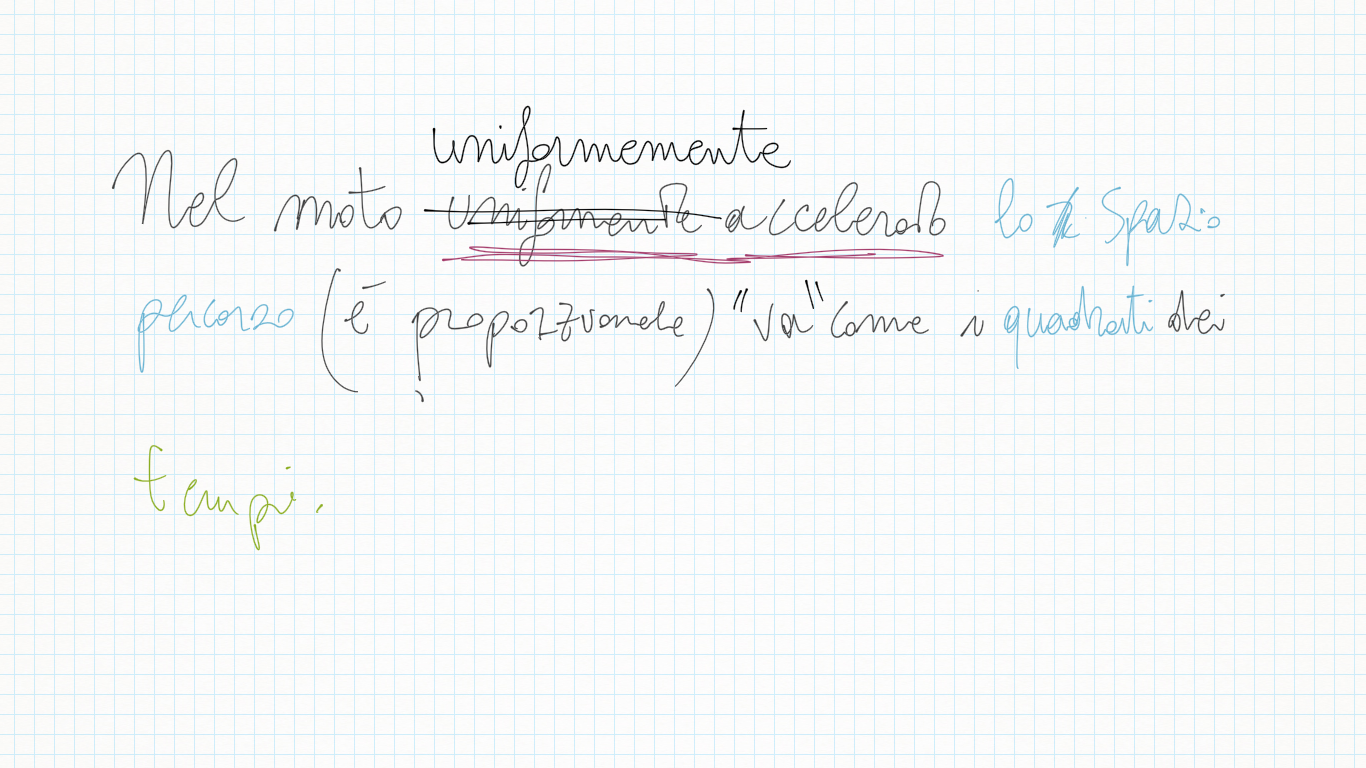 uniformemente
Nel moto uniformente accelerato lo spazio
percorso (è proporzionale) "va" come i quadrati dei
tempi.